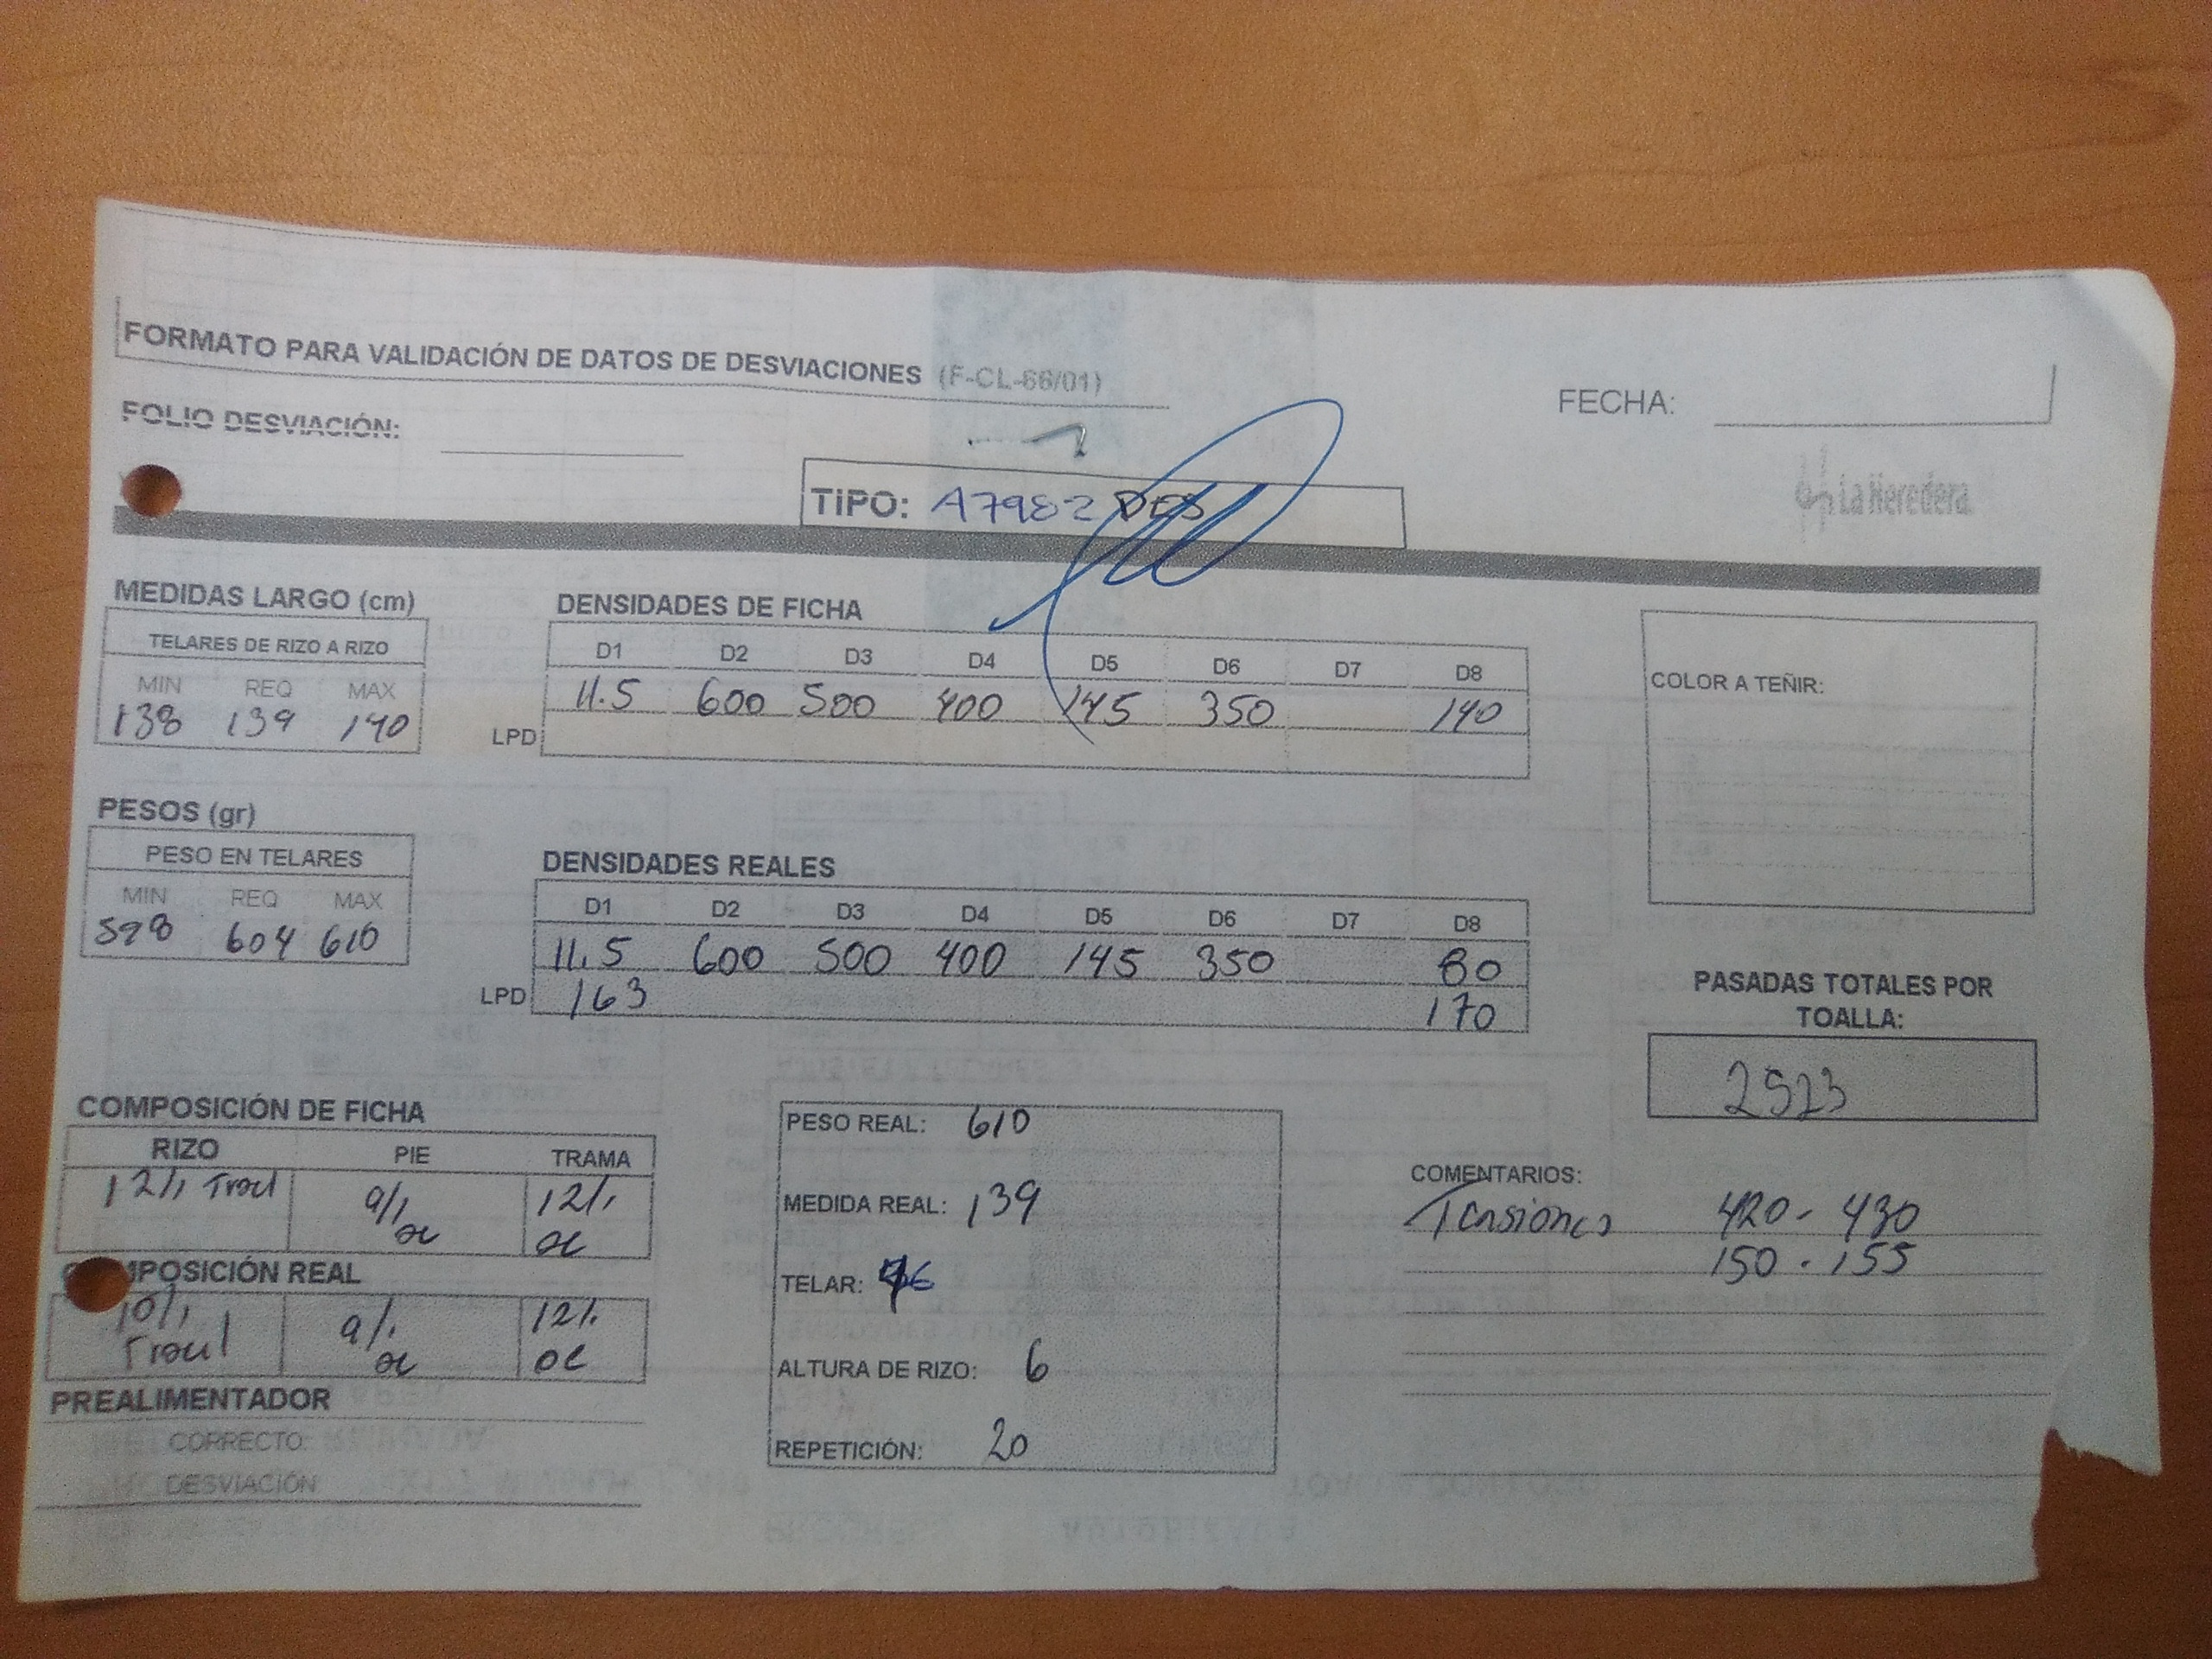 FORMATO PARA VALIDACIÓN DE DATOS DE DESVIACIONES (F-CL-66/01)
FECHA:
FOLIO DESVIACIÓN:
TIPO: A7982 DES
La Heredera
MEDIDAS LARGO (cm)
TELARES DE RIZO A RIZO
MIN REQ MAX
138 139 140
DENSIDADES DE FICHA
D1 D2 D3 D4 D5 D6 D7 D8
11.5 600 500 400 145 350 140
LPD
COLOR A TEÑIR:
PESOS (gr)
PESO EN TELARES
MIN REQ MAX
598 604 610
DENSIDADES REALES
D1 D2 D3 D4 D5 D6 D7 D8
11.5 600 500 400 145 350 80
LPD 163 170
PASADAS TOTALES POR
TOALLA:
2523
COMPOSICIÓN DE FICHA
RIZO PIE TRAMA
12/1 9/1 12/1
oe oe
COMPOSICIÓN REAL
10/1 9/1 12/1
oe oe
PREALIMENTADOR
CORRECTO
DESVIACIÓN
PESO REAL: 610
MEDIDA REAL: 139
TELAR:
ALTURA DE RIZO: 6
REPETICIÓN: 20
COMENTARIOS:
Tensiones 420 - 430
150 - 155